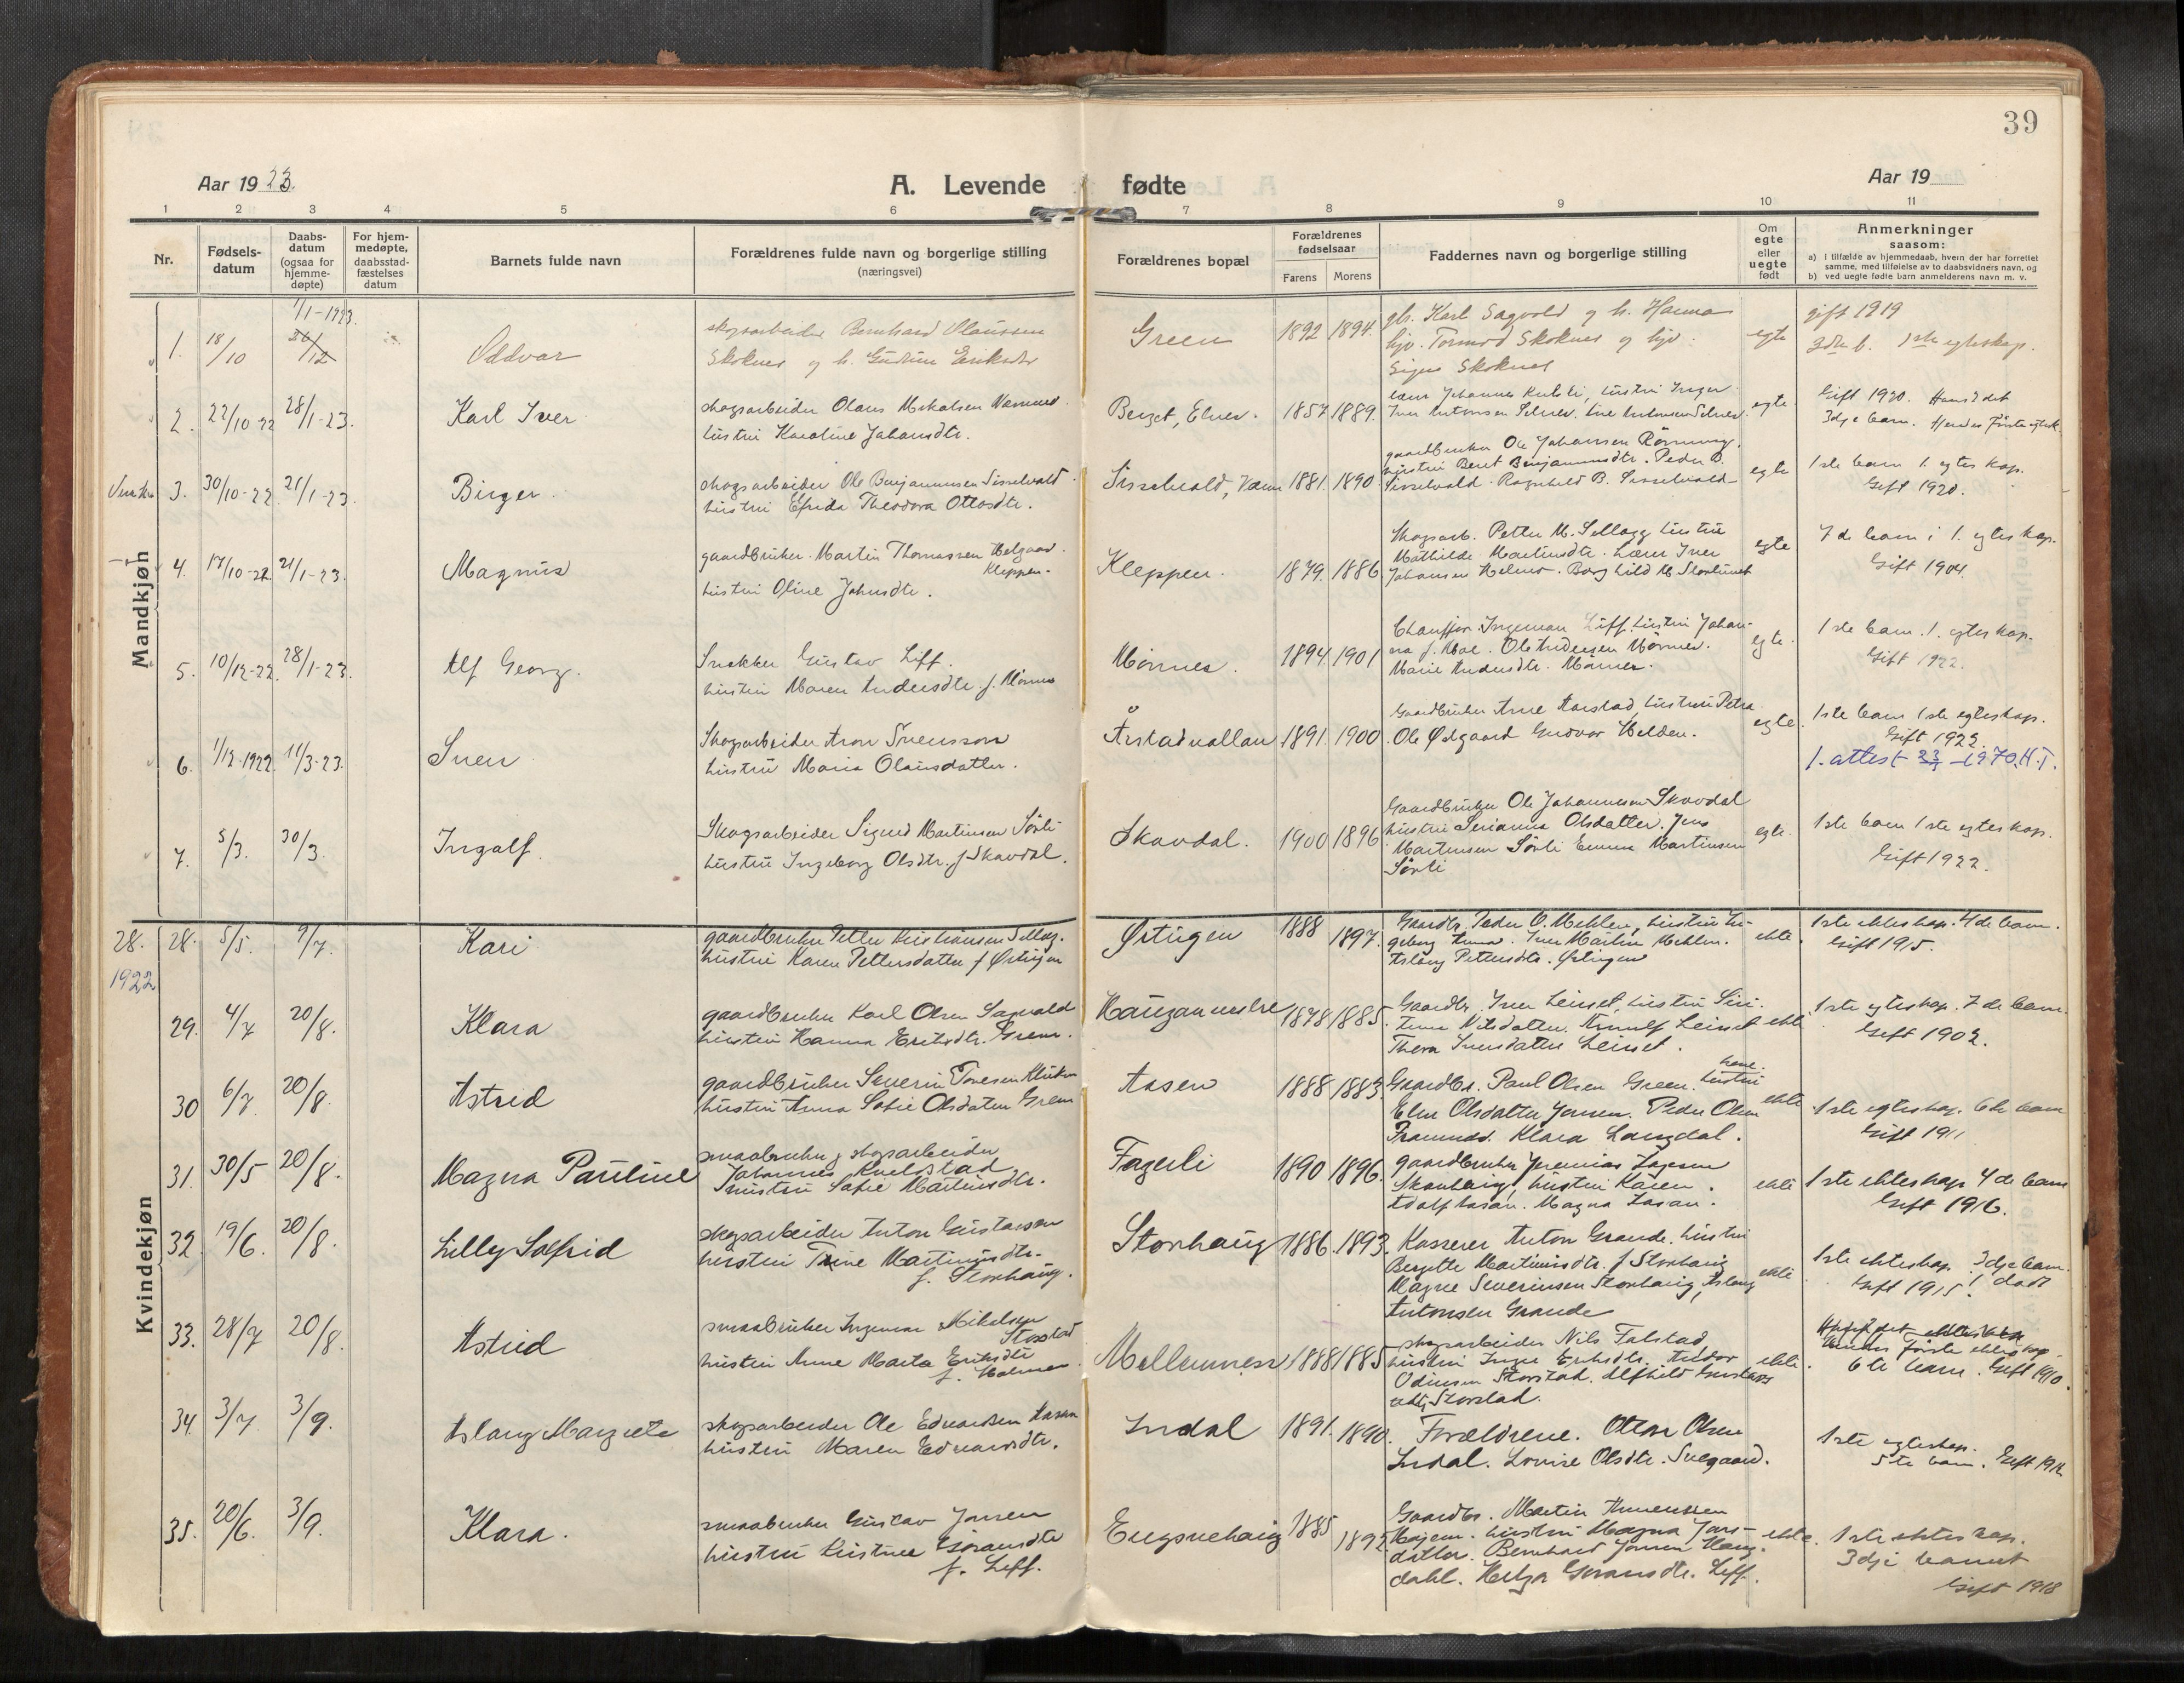 39
Aar 19 23.
A. Levende fødte
Aar 19
1 2 3 4 5 6 7 8 9 10 11
Nr.
Fødsels-
datum
Daabs-
datum
(ogsaa for
hjemme-
døpte)
For hjem-
medøpte,
daabsstad-
fæstelses
datum
Barnets fulde navn
Forældrenes fulde navn og borgerlige stilling
(næringsvei)
Forældrenes bopæl
Forældrenes
fødselsaar
Farens Morens
Faddernes navn og borgerlige stilling
Om
egte
eller
uegte
født
Anmerkninger
saasom:
a) i tilfælde av hjemmedaab, hvem der har forrettet
samme, med tilføielse av to daabsvidners navn, og
b) ved uegte fødte barn anmelderens navn m. v.
Mandkjøn
1. 18/10 1/1-1923. 30/12 Oddvar
skogsarbeider Bernhard Olaussen
Skoknes og h. Gudrun
Green 1892 1894.
gb. Karl Sagvold og h. Hanna
Tormod Skoknes og
Skoknes
egte
gift 1919
3die b. 1ste egteskap.
2. 22/10-22 28/1-23. Karl Iver
skogsarbeider Olaus Mikalsen
hustru Karoline Johansdtr.
Berget, 1857 1889.
Johannes hustru Inger
Iver Antonsen
egte
Gift 1920. Hans 2det
3dje barn. Hendes første egtesk.
3. 30/10-22. 21/1-23. Birger.
skogsarbeider Ole Benjaminsen Sisselvold.
hustru Efrida Theodora Ottosdtr.
Sisselvold, 1881. 1890.
gaardbruker Ole Johansen
hustru Beret Benjaminsdtr. Peder B.
Sisselvold. Ragnhild B. Sisselvold
egte
1ste barn 1. egteskap.
Gift 1920.
4. 17/10-22 21/1-23. Magnus
gaardbruker Martin Thomassen Helgaas.
Kleppen.
hustru Oline Johnsdtr.
Kleppen. 1879. 1886
Skogsarb. Petter M. Sellæg hustru
Mathilde Martinsdtr. Lærer Iver
Johansen
egte
7de barn i 1. egteskap.
Gift 1904.
5. 10/12-22. 28/1-23. Alf Georg.
Snekker Gustav Liff.
hustru Maren Andersdtr. f. Mørnes
Mørnes. 1894. 1901
Chauffør. Ingeman Liff. hustru Johan-
na f. Moe. Ole Andersen Mørnes.
Marie Andersdtr. Mørnes.
egte.
1ste barn. 1. egteskap.
Gift 1922.
6. 1/12-1922. 11/3-23. Sven
Skogsarbeider Aron Svensson
hustru Maria Olausdatter.
Årstadvollan 1891. 1900.
Gaardbruker Arne Aarstad hustru Petra
Ole Ødegaard Gudvor Helden.
egte.
1ste barn 1ste egteskap.
Gift 1922.
1. attest 23/1-1970. H.T.
7. 5/3. 30/3. Ingolf.
Skogsarbeider Sigurd Martinsen Sørli
hustru Ingeborg Olsdtr. f. Skavdal.
Skavdal. 1900 1896
Gaardbruker Ole Johannessen Skavdal
hustru Serianna Olsdatter. Jens
Martinsen Sørli Emma Martinsen
Sørli
egte.
1ste barn 1ste egteskap.
Gift 1922.
Kvindekjøn
28.
1922
28. 5/5. 9/7. Kari
gaardbruker Petter Kristiansen Sellæg.
hustru Karen Pettersdatter f. Ørtugen
Ørtugen 1888 1897.
Gaardbr. Peder O. Mehlen, hustru In-
geborg Anna. Iver Martin Mehlen.
Aslaug Pettersdtr. Ørtugen
ekte.
1ste ekteskap. 4de barn.
Gift 1915.
29. 4/7 20/8. Klara
gaardbruker Karl Olsen Sagvold
hustru Hanna Eriksdtr. Green.
1878 1885.
Gaardbr. Iver Leinset, hustru
Nilsdatter. Arnulf Leinset
Thora Iversdatter Leinset.
ekte
1ste egteskap. 7de barn.
Gift 1902.
30 6/7. 20/8. Astrid
gaardbruker Severin
hustru Anna Sofie Olsdatter Green
Aasen 1888 1883.
Gaardbr. Paul Olsen Green. hans hustru
Elen Olsdatter Jonsen. Peder Olsen
Framnes. Klara Langdal.
ekte
1ste egteskap. 6te barn
Gift 1911
31. 30/5 20/8. Magna Pauline
smaabruker, skogsarbeider
Johannes Kvelstad
hustru Sofie Martinsdtr.
Fagerli 1890 1896.
gaardbruker Jeremias
hustru Karen.
Adolf Aasan. Magna Aasan.
ekte
1ste ekteskap 4de barn
Gift 1916.
32. 19/6. 20/8. Lilly Solfrid
skogsarbeider Anton Gustavsen
hustru Trine Martinusdtr.
f. Storhaug.
Storhaug 1886. 1893.
Kasserer Anton Grande. hustru
Bergitte Martinusdtr. f. Storhaug
Magne Severinsen Storhaug, Aslaug
Antonsen Grande
ekte
1ste ekteskap 3dje barn.
Gift 1915. 1 dødt
33. 28/7 20/8. Astrid
smaabruker Ingemar Mikelsen
Storstad
hustru Anne Marta Eriksdtr.
f. Holmen
Mellemnesset 1888 1885
skogsarbeider Nils Falstad
hustru Inga Eriksdtr. Andor
Odinsen Storstad. Alfhild Gustavs
datter Storstad.
ekte.
første ekteskap.
6te barn. Gift 1910.
34. 3/7 3/9. Aslaug Margrete
skogsarbeider Ole Edvardsen Aasen
hustru Maren Edvardsdtr.
Indal 1891. 1890.
Forældrene. Ottar Olsen
Indal. Lovise Olsdtr. Svegaard.
1ste egteskap.
5te barn. Gift
35. 20/6. 3/9. Klara.
smaabruker Gustav Jonsen
hustru Kristine Gøransdtr
f. Liff.
1885 1892
Gaardbr. Martin
Moejem. hustru Magna Jons-
datter. Bernhard Jonsen Haug-
dahl. Helga Gøransdtr. Liff.
ekte.
1ste ekteskap.
3dje barnet
Gift 1918